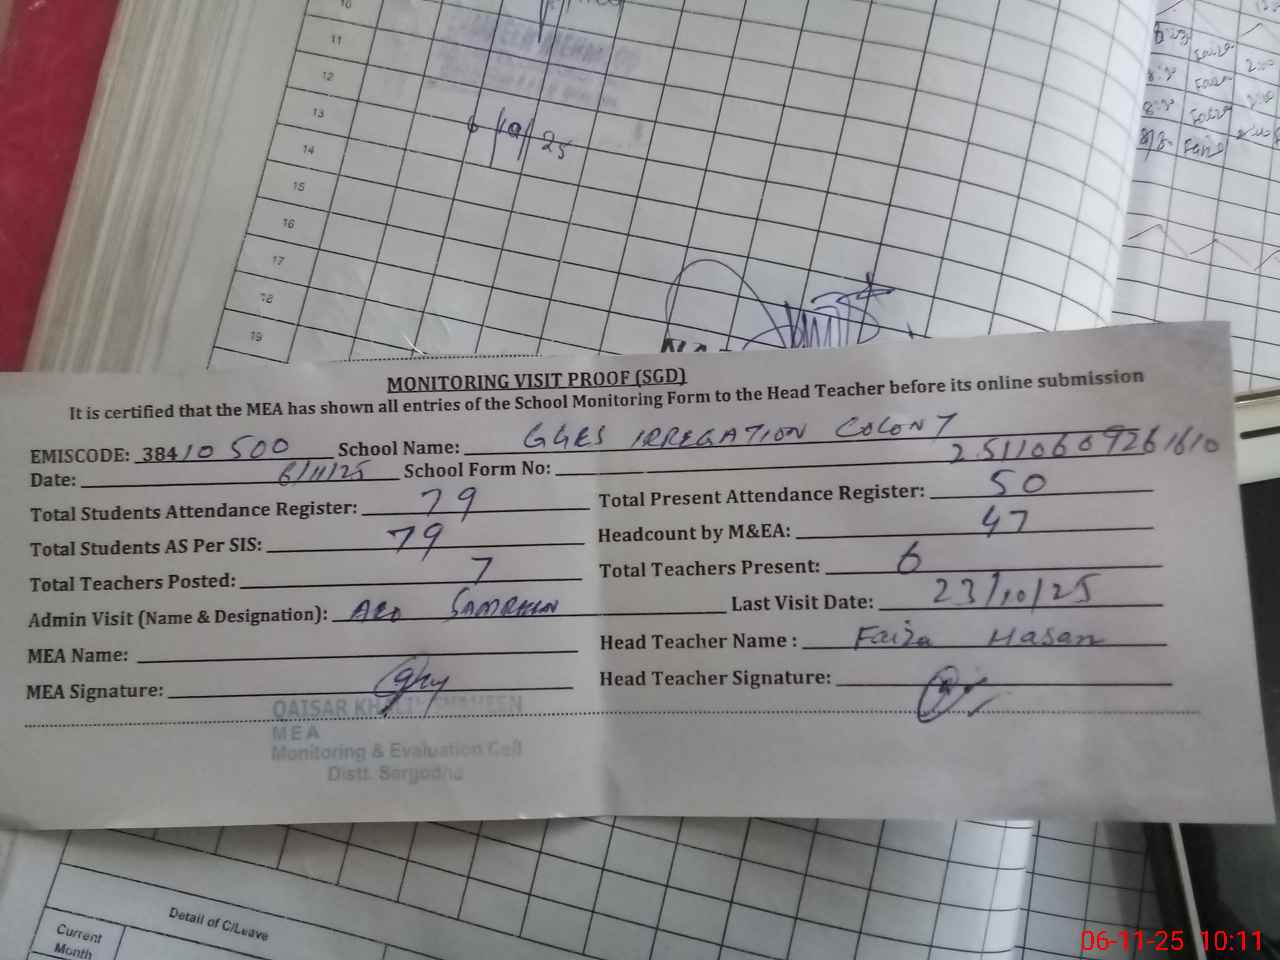 10
11
12
13
14
15
16
17
18
19
6/10/25
Faiza
Faiza
Faiza
MONITORING VISIT PROOF (SGD)
It is certified that the MEA has shown all entries of the School Monitoring Form to the Head Teacher before its online submission
EMISCODE: 38410500 School Name: GGES IRREGATION COLONY
Date: 6/11/25 School Form No: 25110609261610
Total Students Attendance Register: 79 Total Present Attendance Register: 50
Total Students AS Per SIS: 79 Headcount by M&EA: 47
Total Teachers Posted: 7 Total Teachers Present: 6
Admin Visit (Name & Designation): AEO Last Visit Date: 23/10/25
MEA Name: Head Teacher Name : Faiza Hasan
MEA Signature: Head Teacher Signature:
QAISAR
MEA
Monitoring & Evaluation Cell
Distt. Sargodha
Detail of C/Leave
Current
Month
06-11-25 10:11